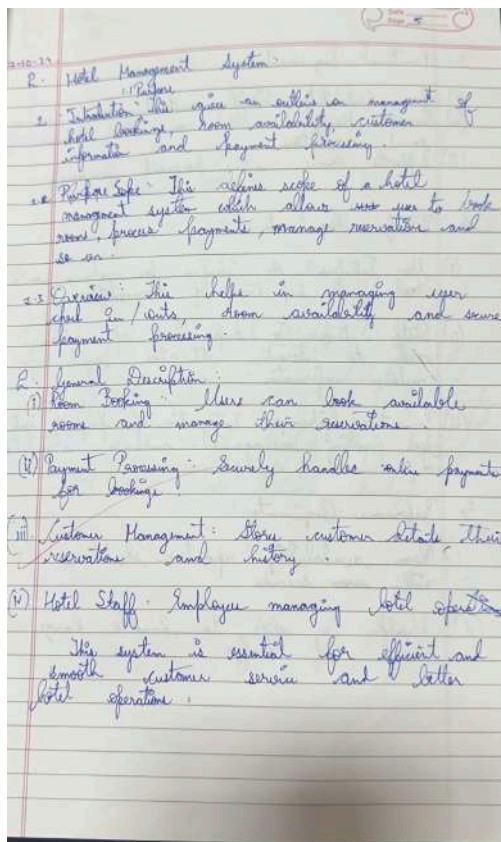 Date
Page 5
2. Hotel Management System:
1.1 Purpose
Introduction: This gives an outline on managment of
hotel bookings, room availability, customer
information and payment processing.
Purpose Scope: This defines scope of a hotel
managment system which allows user to book
rooms, process payments, manage reservations and
so on.
Overview: This helps in managing user
check in/outs, room availability and secure
payment processing.
2. General Description:
(i) Room Booking: Users can book available
rooms and manage their reservations.
(ii) Payment Processing: Securely handles online payments
for bookings.
(iii) Customer Management: Stores customer details, their
reservations and history.
(iv) Hotel Staff: Employees managing hotel operations
This system is essential for efficient and
smooth customer service and better
hotel operations.